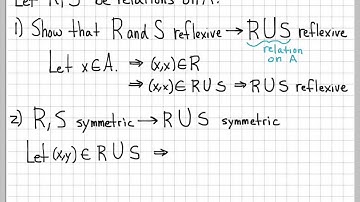 Let R, S be relations on A.
1) Show that R and S reflexive → R ∪ S reflexive
relation
on A
Let x ∈ A. ⇒ (x,x) ∈ R
⇒ (x,x) ∈ R ∪ S ⇒ R ∪ S reflexive
2) R, S symmetric → R ∪ S symmetric
Let (x,y) ∈ R ∪ S ⇒